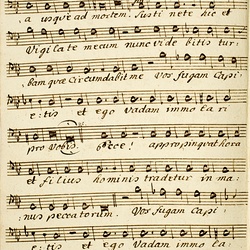 a usque ad mortem. Susti nete hic et
Vigilate mecum nunc vide bitis tur:
bam quæ Circumdabit me Vos fugam Capi:
e:tis et ego Vadam immo la ri
pro vobis. ecce! appropinquat hora
et filius hominis tradetur in ma:
nus peccatorum. Vos fugam Capi:
e:tis et ego Vadam immo la: